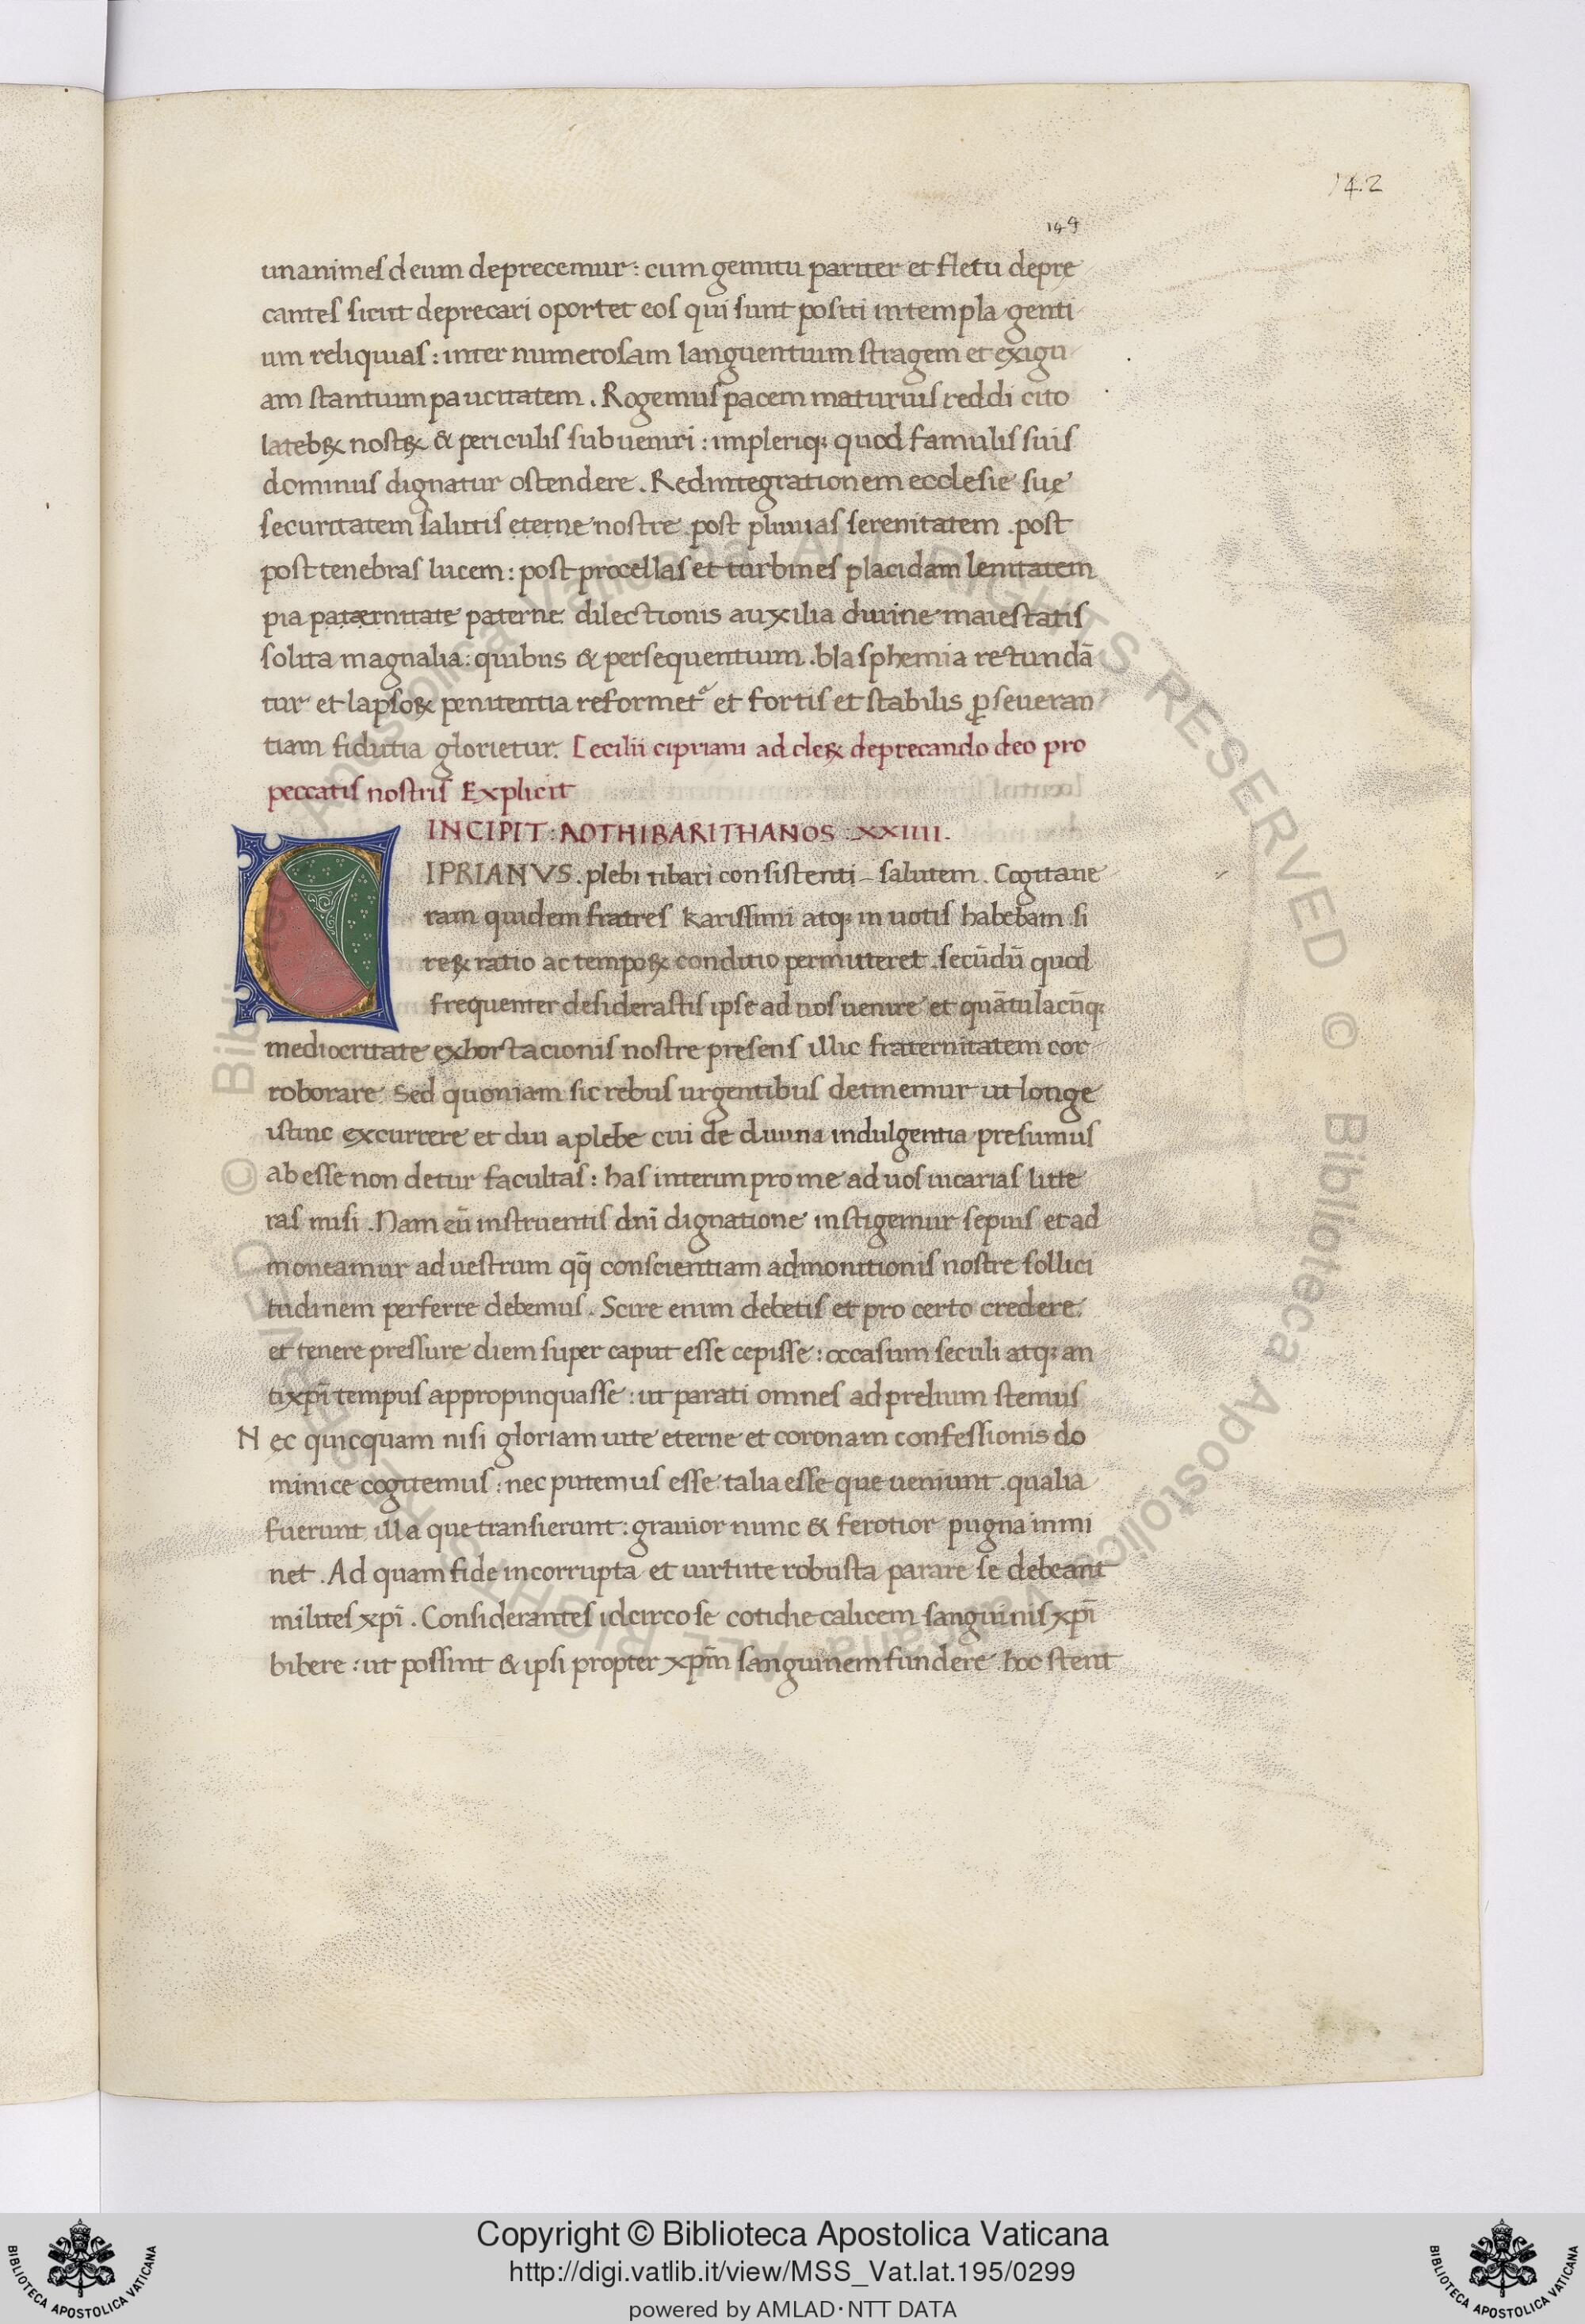 142
149
unanimes deum deprecemur: cum gemitu pariter et fletu depre
cantes sicut deprecari oportet eos qui sunt positi in templa genti
um reliquias: inter numerosam languentium stragem et exigu
am stantium paucitatem. Rogemus pacem maturius reddi cito
latebꝝ nostꝝ & periculis subueniri: impleriq; quod famulis suis
dominus dignatur ostendere. Redintegrationem ecclesie suę
securitatem salutis eterne nostre. post pluuias serenitatem. post
post tenebras lucem: post procellas et turbines placidam lenitatem
pia pataernitate paterne dilectionis auxilia diuine maiestatis
solita magnalia: quibus & persequentium. blasphemia retundā
tur et lapsoꝝ penitentia reformet᷑ et fortis et stabilis ꝑseueran
tiam fidutia glorietur. Cecilii cipriani ad cleꝝ deprecando deo pro
peccatis nostris Explicit
INCIPIT: AD THIBARITHANOS: XXIIII.
CIPRIANVS. plebi tibari consistenti salutem. Cogitaue
ram quidem fratres karissimi atq; in uotis habebam si
reꝝ ratio ac tempoꝝ conditio permitteret. secūdū quod
frequenter desiderastis ipse ad uos uenire et quātulacūq;
mediocritate exhortacionis nostre presens illic fraternitatem cor
roborare. Sed quoniam sic rebus urgentibus detinemur ut longe
istinc excurrere et diu a plebe cui de diuina indulgentia presumus
abesse non detur facultas: has interim pro me ad uos uicarias litte
ras misi. Nam cū instruentis dn̄i dignatione instigemur sepius et ad
moneamur ad uestram qq̄ conscientiam admonitionis nostre sollici
tudinem perferre debemus. Scire enim debetis et pro certo credere.
et tenere pressure diem super caput esse cepisse: occasum seculi atq; an
tixpī tempus appropinquasse: ut parati omnes ad prelium stemus
Nec quicquam nisi gloriam uite eterne et coronam confessionis do
minice cogitemus: nec putemus esse talia esse que ueniunt. qualia
fuerunt illa que transierunt: grauior nunc & ferotior pugna inmi
net. Ad quam fide incorrupta et uirtute robusta parare se debeant
milites xpī. Considerantes idcirco se cotidie calicem sanguinis xpī
bibere: ut possint & ipsi propter xpm̄ sanguinem fundere. hoc stent
Copyright © Biblioteca Apostolica Vaticana
http://digi.vatlib.it/view/MSS_Vat.lat.195/0299
powered by AMLAD·NTT DATA
BIBLIOTECA APOSTOLICA VATICANA
BIBLIOTECA APOSTOLICA VATICANA
© Biblioteca Apostolica Vaticana ALL RIGHTS RESERVED © Biblioteca Apostolica Vaticana ALL RIGHTS RESERVED